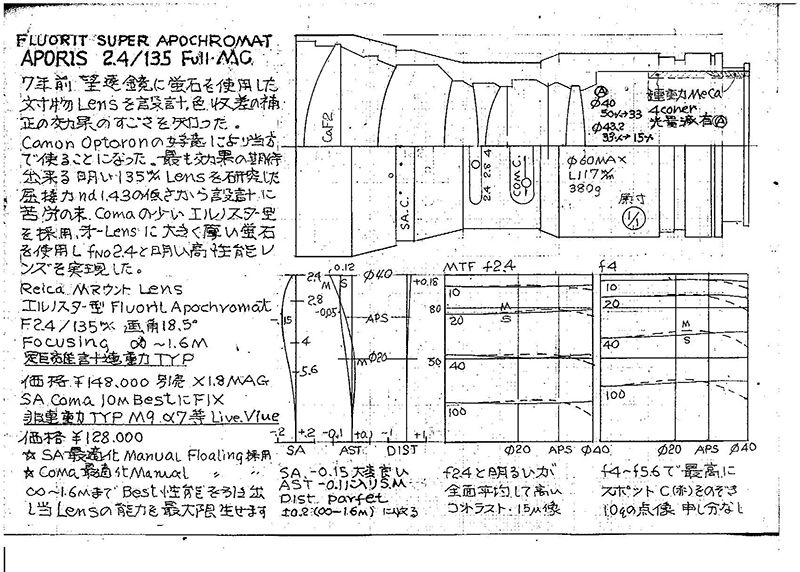 FLUORIT SUPER APOCHROMAT
APORIS 2.4/135 Full・MC.
7年前 望遠鏡に蛍石を使用した
対物Lensを設計、色収差の補
正の効果のすごさを知った。
Canon Optoronの好意により当方
で使ることになった。最も効果の期待
出来る明い135㎜Lensを研究した
屈接力nd1.43の低さから設計に
苦労の末、Comaの少いエルノスター型
を採用、オーLensに大きく厚い蛍石
を使用し fNo2.4と明い高性能レ
ンズを実現した。
Reica Mマウント Lens
エルノスター型 Fluorit Apochromat
F2.4/135㎜ 画角18.5°
Focusing ∞~1.6M
距離計連動TYP
価格 ¥148,000 別売 X1.8MAG
SA Coma 10M BestにFIX
非連動TYP M9 α7等Live.Viue
価格 ¥128,000
☆ SA最適化Manual Floaling採用
☆ Coma最適化Manual 〃 〃
∞~1.6MまでBest性能を引き出
し当Lensの能力を最大限生せます
CaF2
SA.C.
2.4 2.8 4
COM.C.
Ⓐ
φ40
50%→33
φ43.2
33%→15%
連動MeCa
4coner
光量減有Ⓐ
φ60MAX
L117㎜
380g
原寸
1/1
2.4
2.8
4
5.6
.15
-2 +2
SA
0.12
M S
-0.05
φ40
APS
φ20
M
-0.1 +0.1
AST.
+0.18
-1 +1
DIST
SA -0.15 大きない
AST -0.1に入りS.M
DIST. parfet
±0.2(∞~1.6M)に収る
MTF f2.4
10
20
40
100
80
50
M
S
φ20 APS φ40
f2.4と明るいが
全面平均して高い
コントラスト・15μ像
f4
10
20
40
100
M
S
φ20 APS φ40
f4~f5.6で最高に
スポットC(赤)をのぞき
10φの点像 申し分なし